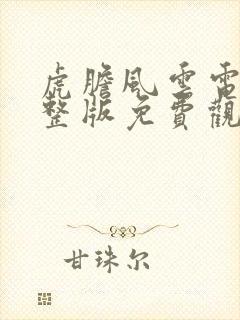 虎膽風雲電
整版免費觀
甘珠尔